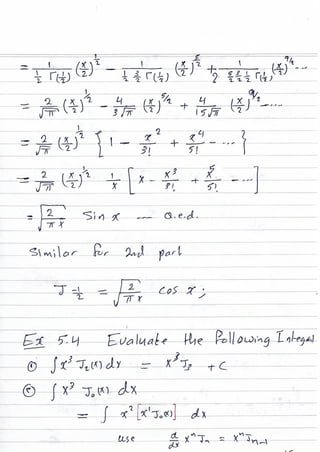 = 1/(½ Γ(½)) (x/2)^½ − 1/(½ 3/2 Γ(½)) (x/2)^5/2 + 1/(2 5/2 3/2 ½ Γ(½)) (x/2)^9/4 ...
= 2/√π (x/2)^½ − 4/(3√π) (x/2)^5/2 + 4/(15√π) (x/2)^9/2 ......
= 2/√π (x/2)^½ { 1 − x²/3! + x⁴/5! − ... }
= 2/√π (x/2)^½ 1/x [ x − x³/3! + x⁵/5! − ... ]
= √(2/πx) Sin x --- Q.e.d.
Similar for 2nd part
J −½ = √(2/πx) cos x ;
Ex 5.4 Evaluate the following Integ
① ∫ x³ J₂(x) dx = x³ J₃ + C
② ∫ x³ J₀(x) dx
= ∫ x² [x¹ J₀(x)] dx
use d/dx xⁿ Jₙ = xⁿ Jₙ₋₁